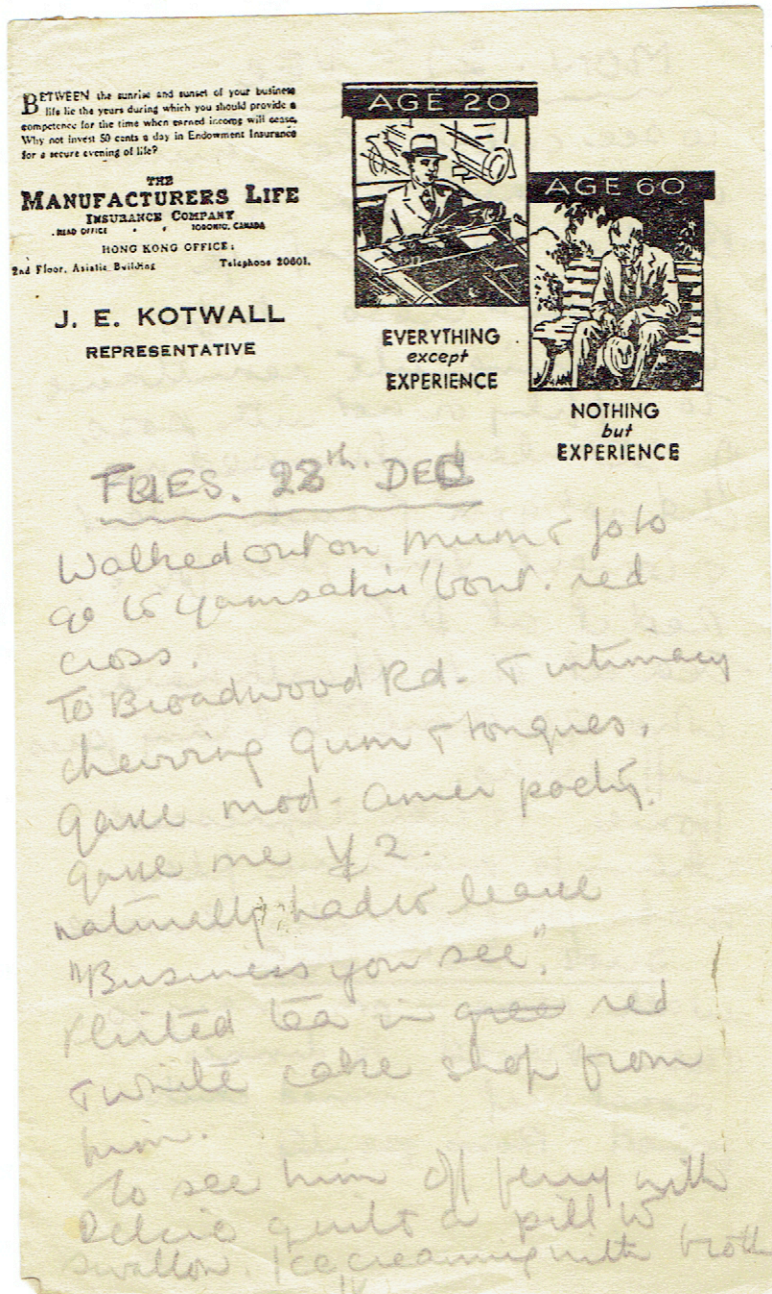 BETWEEN the sunrise and sunset of your business
life lie the years during which you should provide a
competence for the time when earned income will cease.
Why not invest 50 cents a day in Endowment Insurance
for a secure evening of life?
THE
MANUFACTURERS LIFE
INSURANCE COMPANY
HEAD OFFICE TORONTO, CANADA
HONG KONG OFFICE:
2nd Floor, Asiatic Building Telephone 20601.
J. E. KOTWALL
REPRESENTATIVE
AGE 20
EVERYTHING
except
EXPERIENCE
AGE 60
NOTHING
but
EXPERIENCE
28th. DEC
Walked out on Mum & Jo to
go to 'bout. red
cross.
To Broadwood Rd. & intimacy
chewing gum & tongues.
Gave mod- amer poetry.
gave me ¥ 2.
naturally had to leave
"Business you see".
Flirted tea in red
& white cake shop from
him.
To see him off ferry with
guilt a pill to
swallow. Icecreaming with